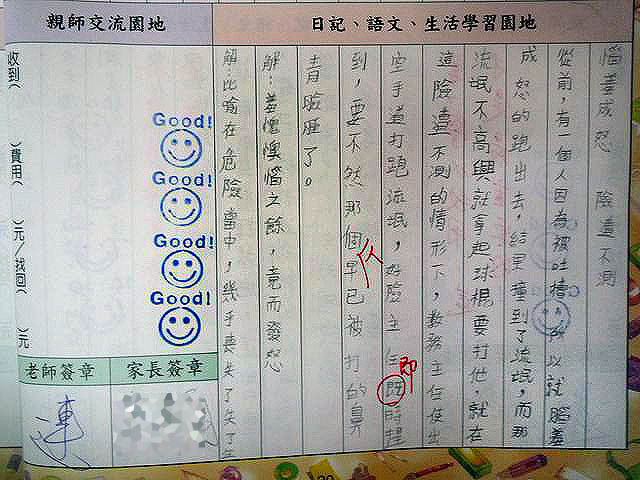 日記、語文、生活學習園地
惱羞成怒 險遭不測
從前,有一個人因為被吐槽,所以就腦羞
成怒的跑出去,結果撞到了流氓,而那
流氓不高興就拿起球棍要打他,就在
這險遭不測的情形下,教務主任使出
空手道打跑流氓,好險主任既時趕
即
到,要不然那個早已被打的鼻
人
青臉腫了。
解:羞愧懊惱之餘,竟而發怒
解:比喻在危險當中,幾乎喪失了
親師交流園地
Good!
Good!
Good!
Good!
收到( )費用( )元/找回( )元
家長簽章
老師簽章
連